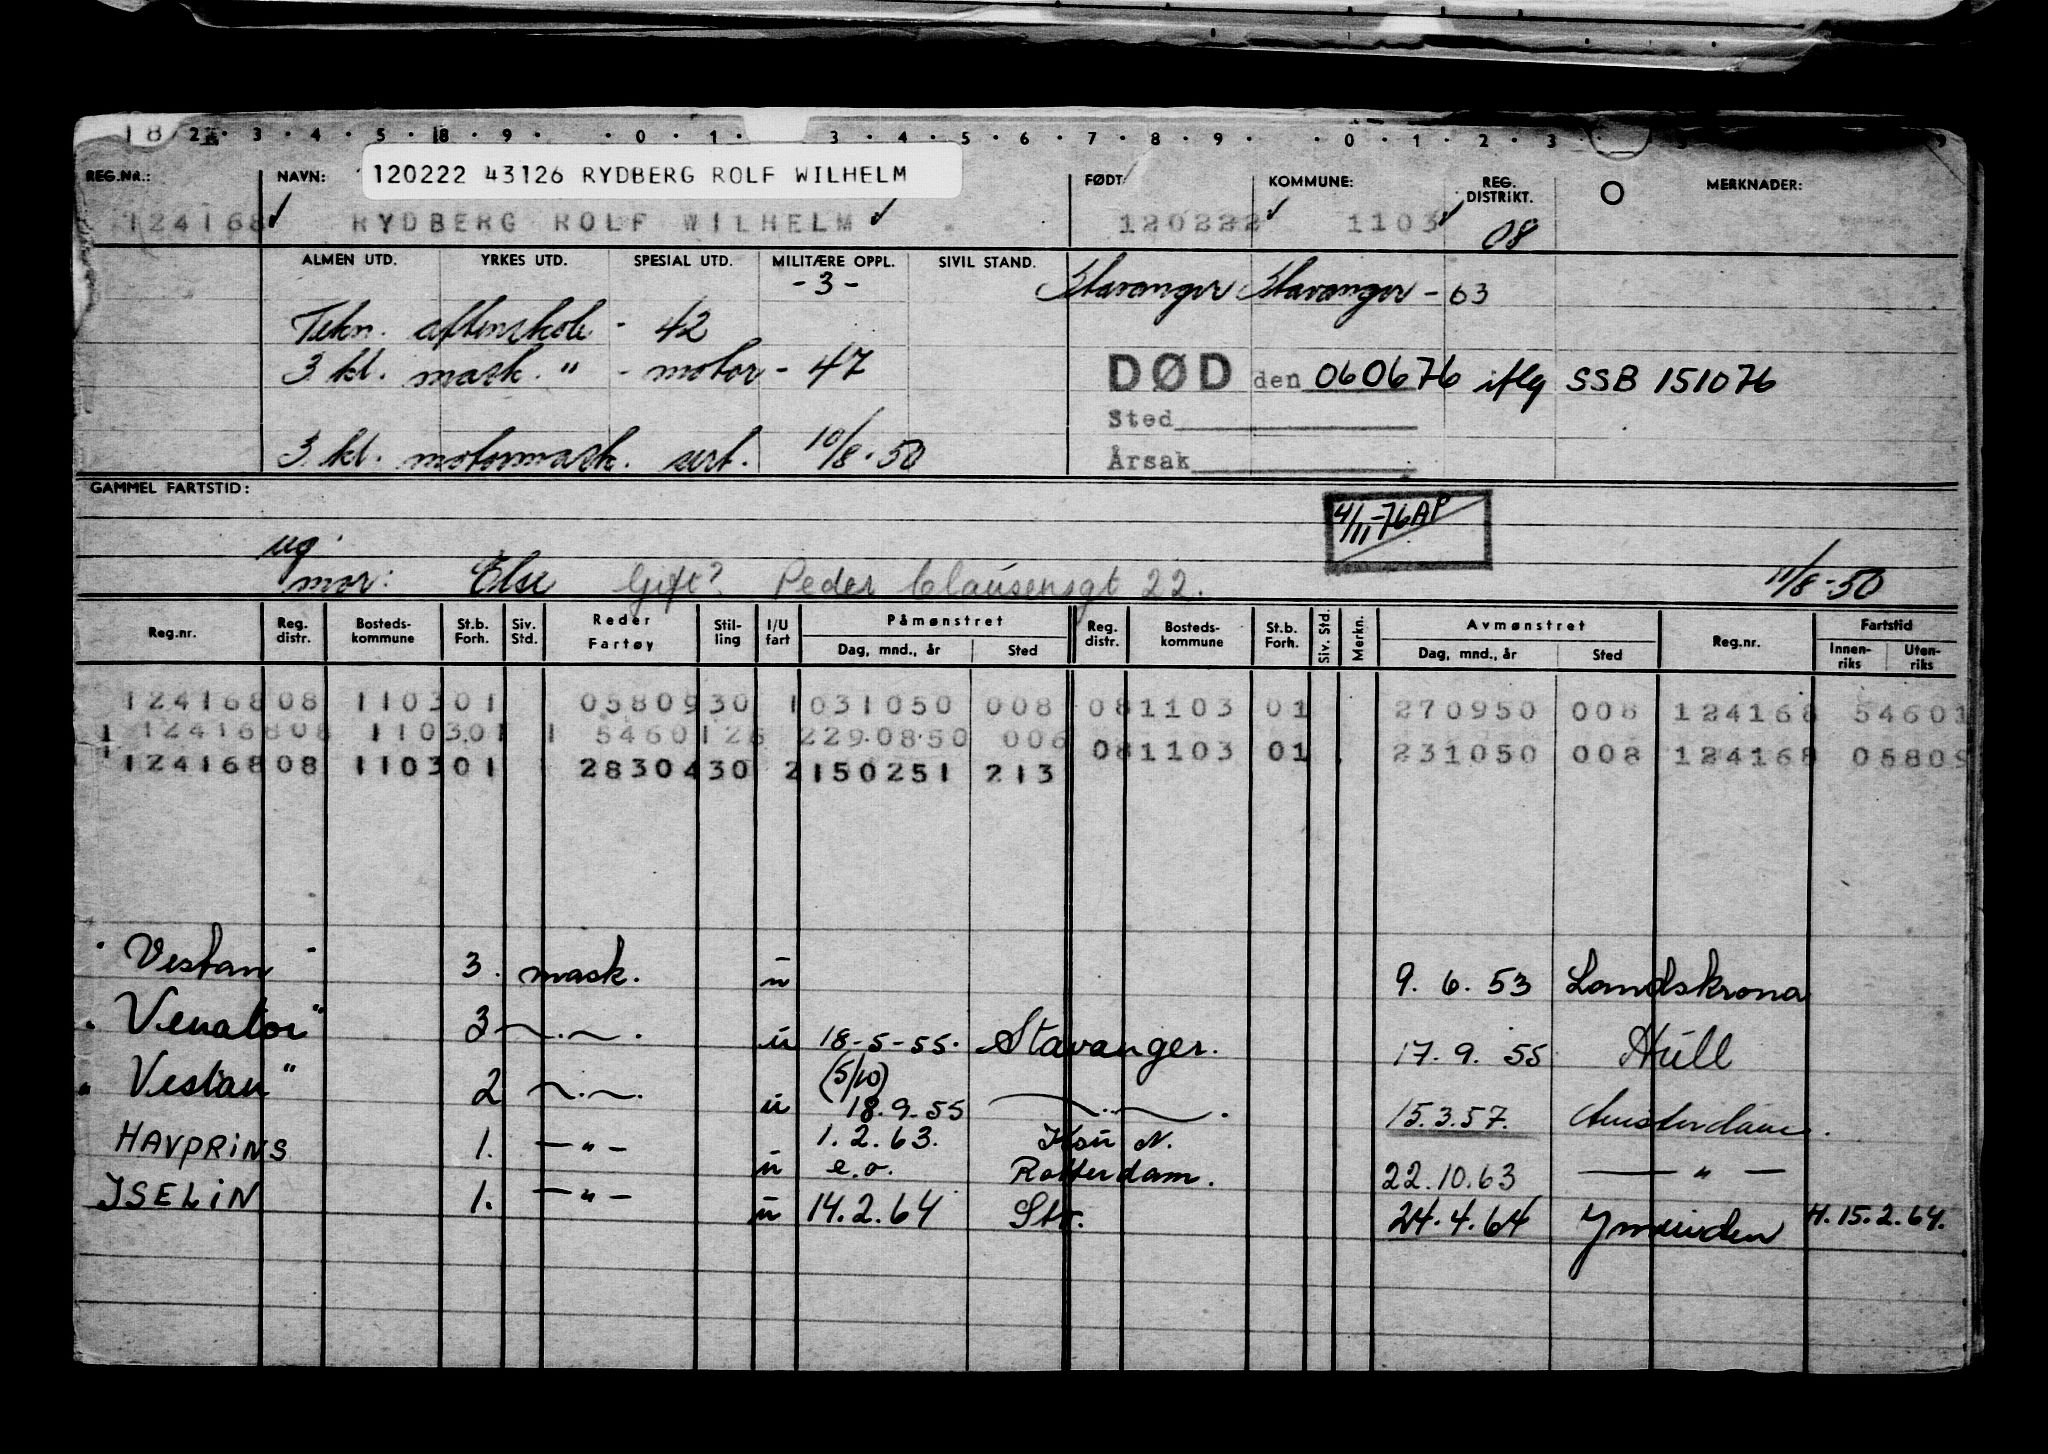 18 2 · 3 · 4 · 5 · 8 · 9 · · 0 · 1 · 3 · 4 · 5 · 6 · 7 · 8 · 9 · · 0 · 1 · 2 · 3 ·
120222 43126 RYDBERG ROLF WILHELM
REG.NR.: NAVN: FØDT: KOMMUNE: REG. DISTRIKT. MERKNADER:
124168 RYDBERG ROLF WILHELM 120222 1103 08
ALMEN UTD. YRKES UTD. SPESIAL UTD. MILITÆRE OPPL. SIVIL STAND.
-3- Stavanger Stavanger - 63
Tekn. aftenskole - 42
3 kl. mask. " - motor - 47
DØD den 060676 iflg SSB 151076
Sted
3 kl. motormask. sert. 10/8-50
Årsak
GAMMEL FARTSTID:
4/11-76 AP
ug.
mor: Else Gift? Peder Clausensgt 22. 11/8-50
Reg.nr. Reg. distr. Bosteds- kommune St.b. Forh. Siv. Std. Reder Fartøy Stil- ling I/U fart Påmønstret Dag, mnd., år Sted Reg. distr. Bosteds- kommune St.b. Forh. Siv. Std. Merkn. Avmønstret Dag, mnd., år Sted Reg.nr. Fartstid Innen- riks Uten- riks
124168 08 1103 01 05809 30 1 031050 008 08 1103 01 270950 008 124168 54601
124168 08 1103 01 1 54601 28 2 290850 006 08 1103 01 231050 008 124168 05809
124168 08 1103 01 28304 30 2 150251 213
" Vestan " 3. mask. u 9. 6. 53 Landskrona
" Venator" 3 ~.~. u 18-5-55. Stavanger. 17. 9. 55 Hull
(5/10)
" Vestan" 2 ~.~. u 18.9.55 ~..~. 15.3.57. Amsterdam.
HAVPRINS 1. —"— u 1.2.63. N.
e.o. Rotterdam. 22.10.63 — " —
ISELIN 1. —"— u 14.2.64 Str. 24.4.64 Ymuiden H. 15.2.64.